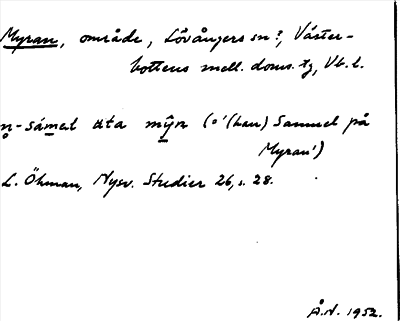 Myran, område, Lövångers sn?, Väster-
bottens mell. doms. tg, Vb. l.
n̥-sámel uta mŷn (o'(han) Samuel på
Myran')
L. Öhman, Nysv. Studier 26, s. 28.
Å.N. 1952.